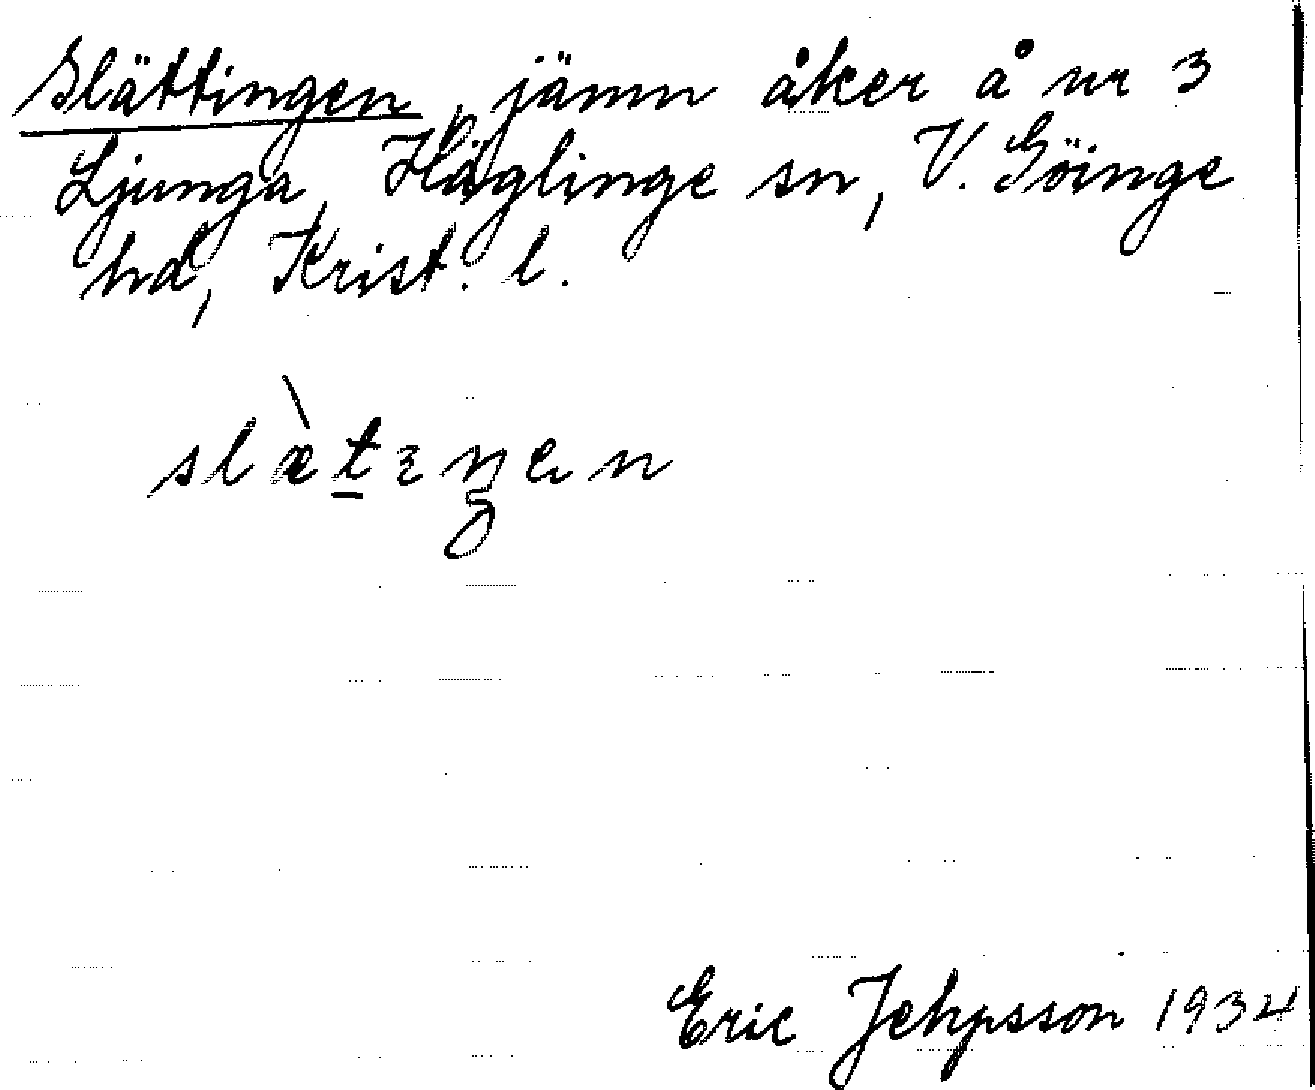 Slättingen, jämn åker å nr 3
Ljunga, Häglinge sn, V. Göinge
hd, Krist. l.
slæ̀t̲ɪŋen
Eric Jehpsson 1934